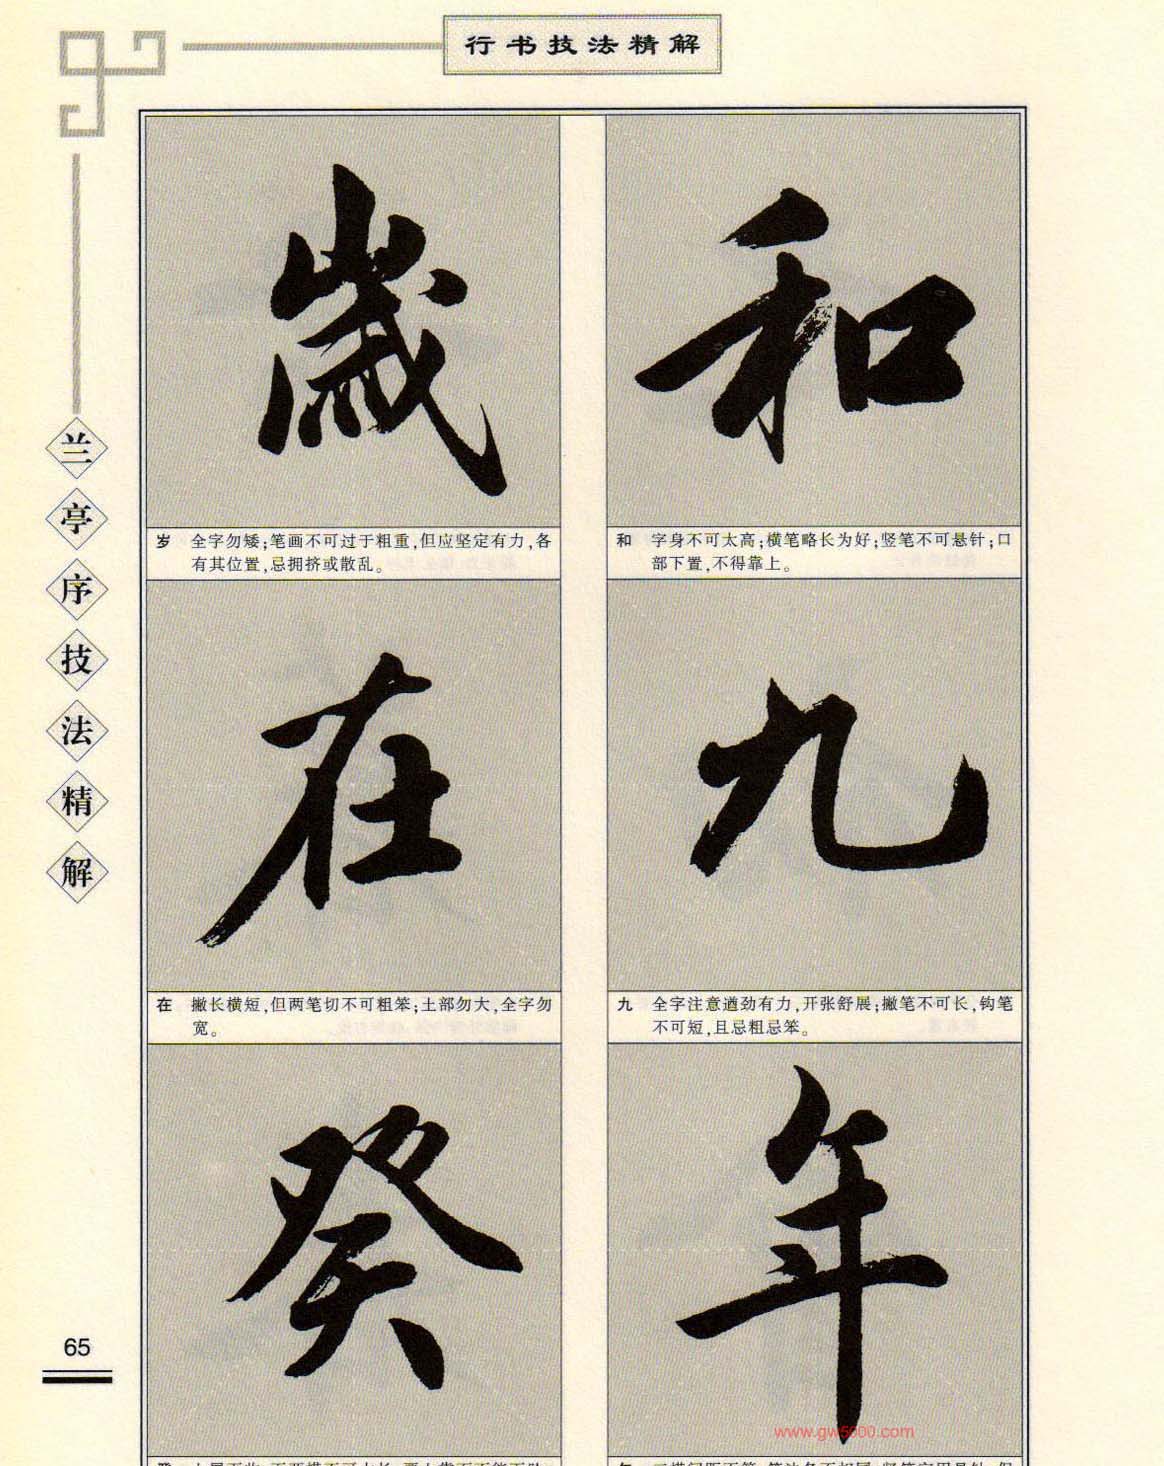 行书技法精解
兰亭序技法精解
和
和 字身不可太高;横笔略长为好;竖笔不可悬针;口
部下置,不得靠上。
九
九 全字注意遒劲有力,开张舒展;撇笔不可长,钩笔
不可短,且忌粗忌笨。
年
歲
岁 全字勿矮;笔画不可过于粗重,但应坚定有力,各
有其位置,忌拥挤或散乱。
在
在 撇长横短,但两笔切不可粗笨;土部勿大,全字勿
宽。
癸
65
www.gw5000.com